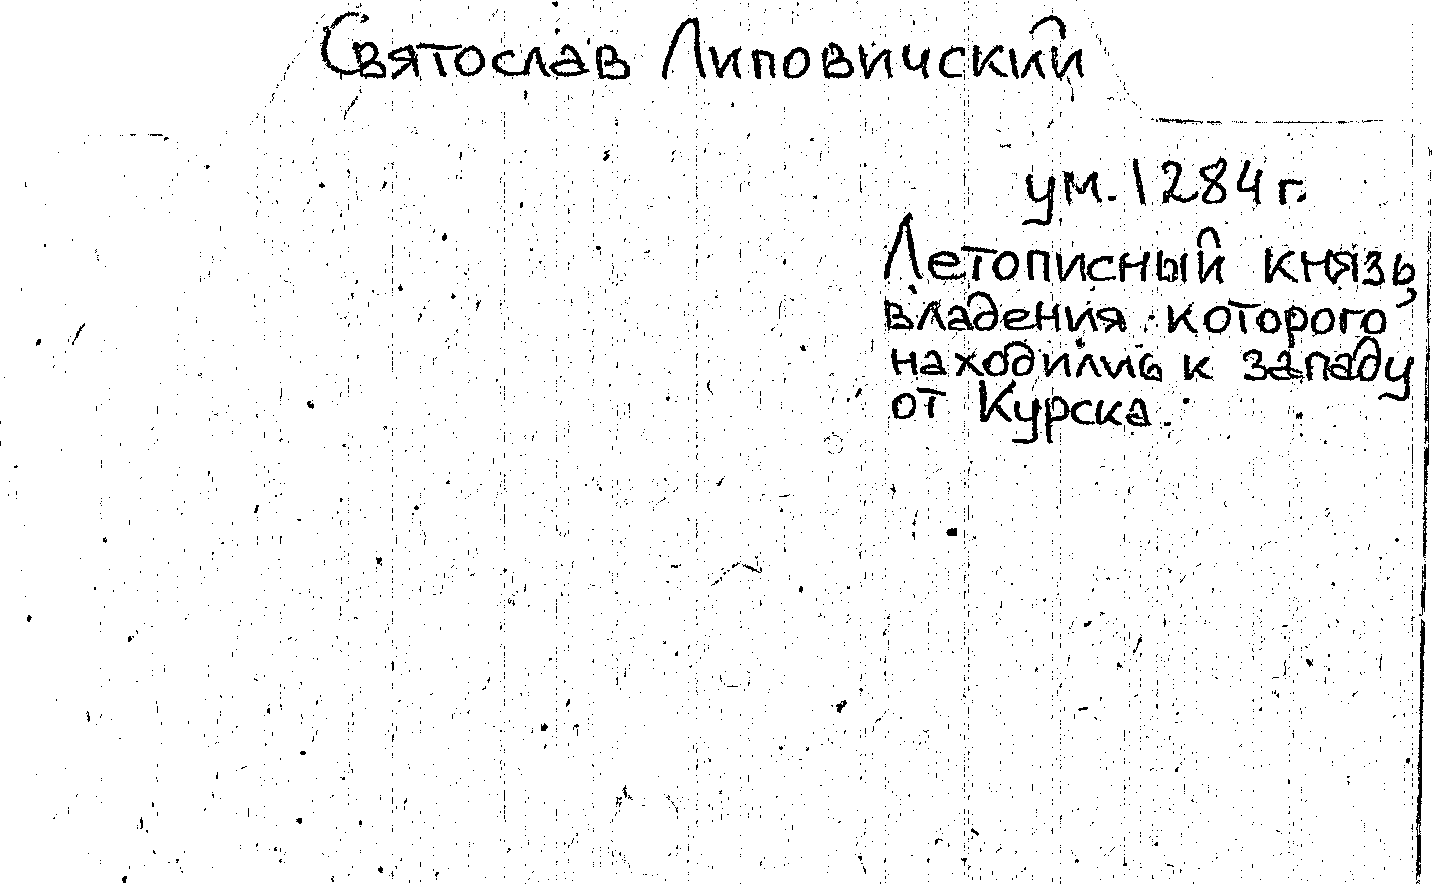 Святослав Липовичский
ум. 1284 г.
Летописный князь,
владения которого
находились к западу
от Курска.